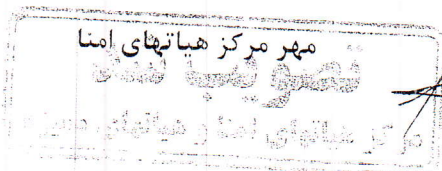 مهر مرکز هیاتهای امنا
تصویب شد
مرکز هیاتهای امنا و هیاتهای ممیزه